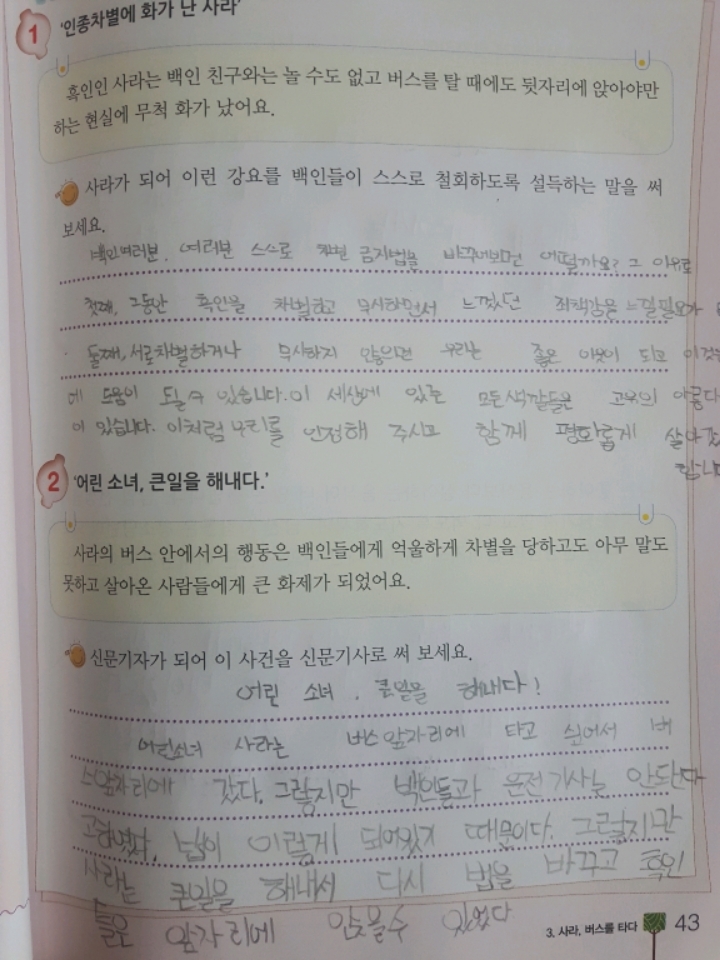 1 '인종차별에 화가 난 사라'
흑인인 사라는 백인 친구와는 놀 수도 없고 버스를 탈 때에도 뒷자리에 앉아야만
하는 현실에 무척 화가 났어요.
사라가 되어 이런 강요를 백인들이 스스로 철회하도록 설득하는 말을 써
보세요.
백인여러분. 여러분 스스로 차별 금지법을 바꾸어보면 어떨까요? 그 이유로
첫째, 그동안 흑인을 차별하고 무시하면서 느꼈던 죄책감을 느낄필요가
둘째, 서로차별하거나 무시하지 않으면 우리는 좋은 이웃이 되고 이것은
에 도움이 될 수 있습니다. 이 세상에 있는 모든색깔들은 고유의 아름다
이 있습니다. 이처럼 우리를 인정해 주시고 함께 평화롭게 살아갔
합니
2 '어린 소녀, 큰일을 해내다.'
사라의 버스 안에서의 행동은 백인들에게 억울하게 차별을 당하고도 아무 말도
못하고 살아온 사람들에게 큰 화제가 되었어요.
신문기자가 되어 이 사건을 신문기사로 써 보세요.
어린 소녀, 큰일을 해내다!
어린소녀 사라는 버스앞자리에 타고 싶어서 버
스앞자리에 갔다. 그렇지만 백인들과 운전기사는 안된다
고하였다. 법이 이렇게 되어있기 때문이다. 그렇지만
사라는 큰일을 해내서 다시 법을 바꾸고 흑인
들은 앞자리에 앉을수 있었다
3. 사라, 버스를 타다 43